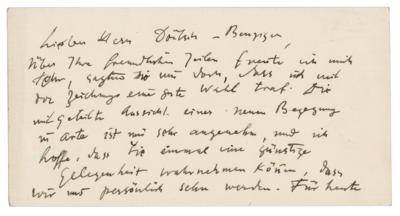 Lieber Herr Doitsch - Benziger,
Über Ihre freundlichen Zeilen freute ich mich
sehr, sagten Sie mir doch, dass ich mit
der Zeichnung eine gute Wahl traf. Die
mitgeteilte Aussicht einer neuen Begegung
in arte ist mir sehr angenehm, und ich
hoffe, dass Sie einmal eine günstige
Gelegenheit wahrnehmen können, dass
wir uns persönlich sehn werden. Für heute